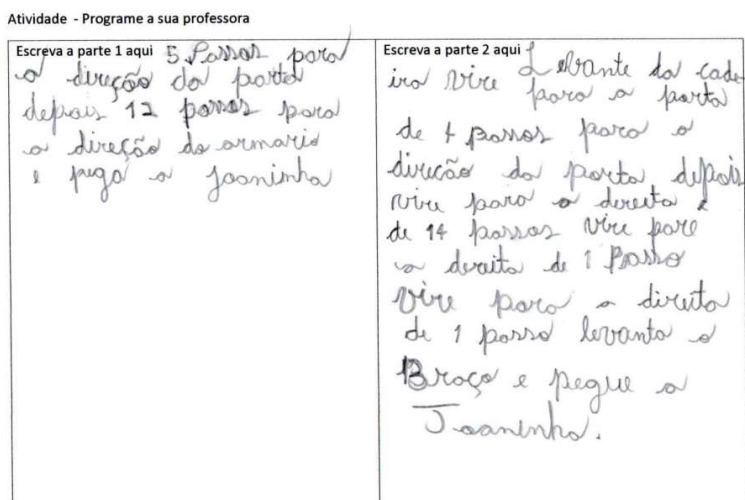 Atividade - Programe a sua professora
Escreva a parte 1 aqui 5 Passos para
a direção da porta
depois 12 passos para
a direção do armario
e pega a joaninha
Escreva a parte 2 aqui Levante da cade
ira vire para a porta
de 4 passos para a
direção da porta depois
vire para a dereita e
de 14 passos vire pare
a dereita de 1 Passo
vire para a direita
de 1 passo levanta o
Braço e pegue a
Joaninha.